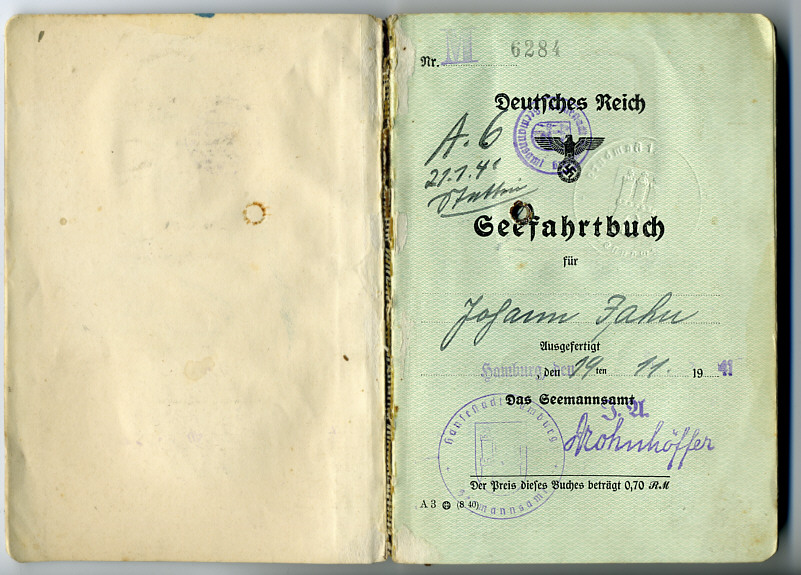 Nr. M 6284
Deutsches Reich
A. 6
Seemannsamt
Seefahrtbuch
für
Johann Zahn
Ausgefertigt
Hamburg, den, den 19 ten 11. 19 41
Das Seemannsamt
I. A.
Hansestadt Hamburg
Seemannsamt
Der Preis dieses Buches beträgt 0,70 RM
A 3 (8 40)